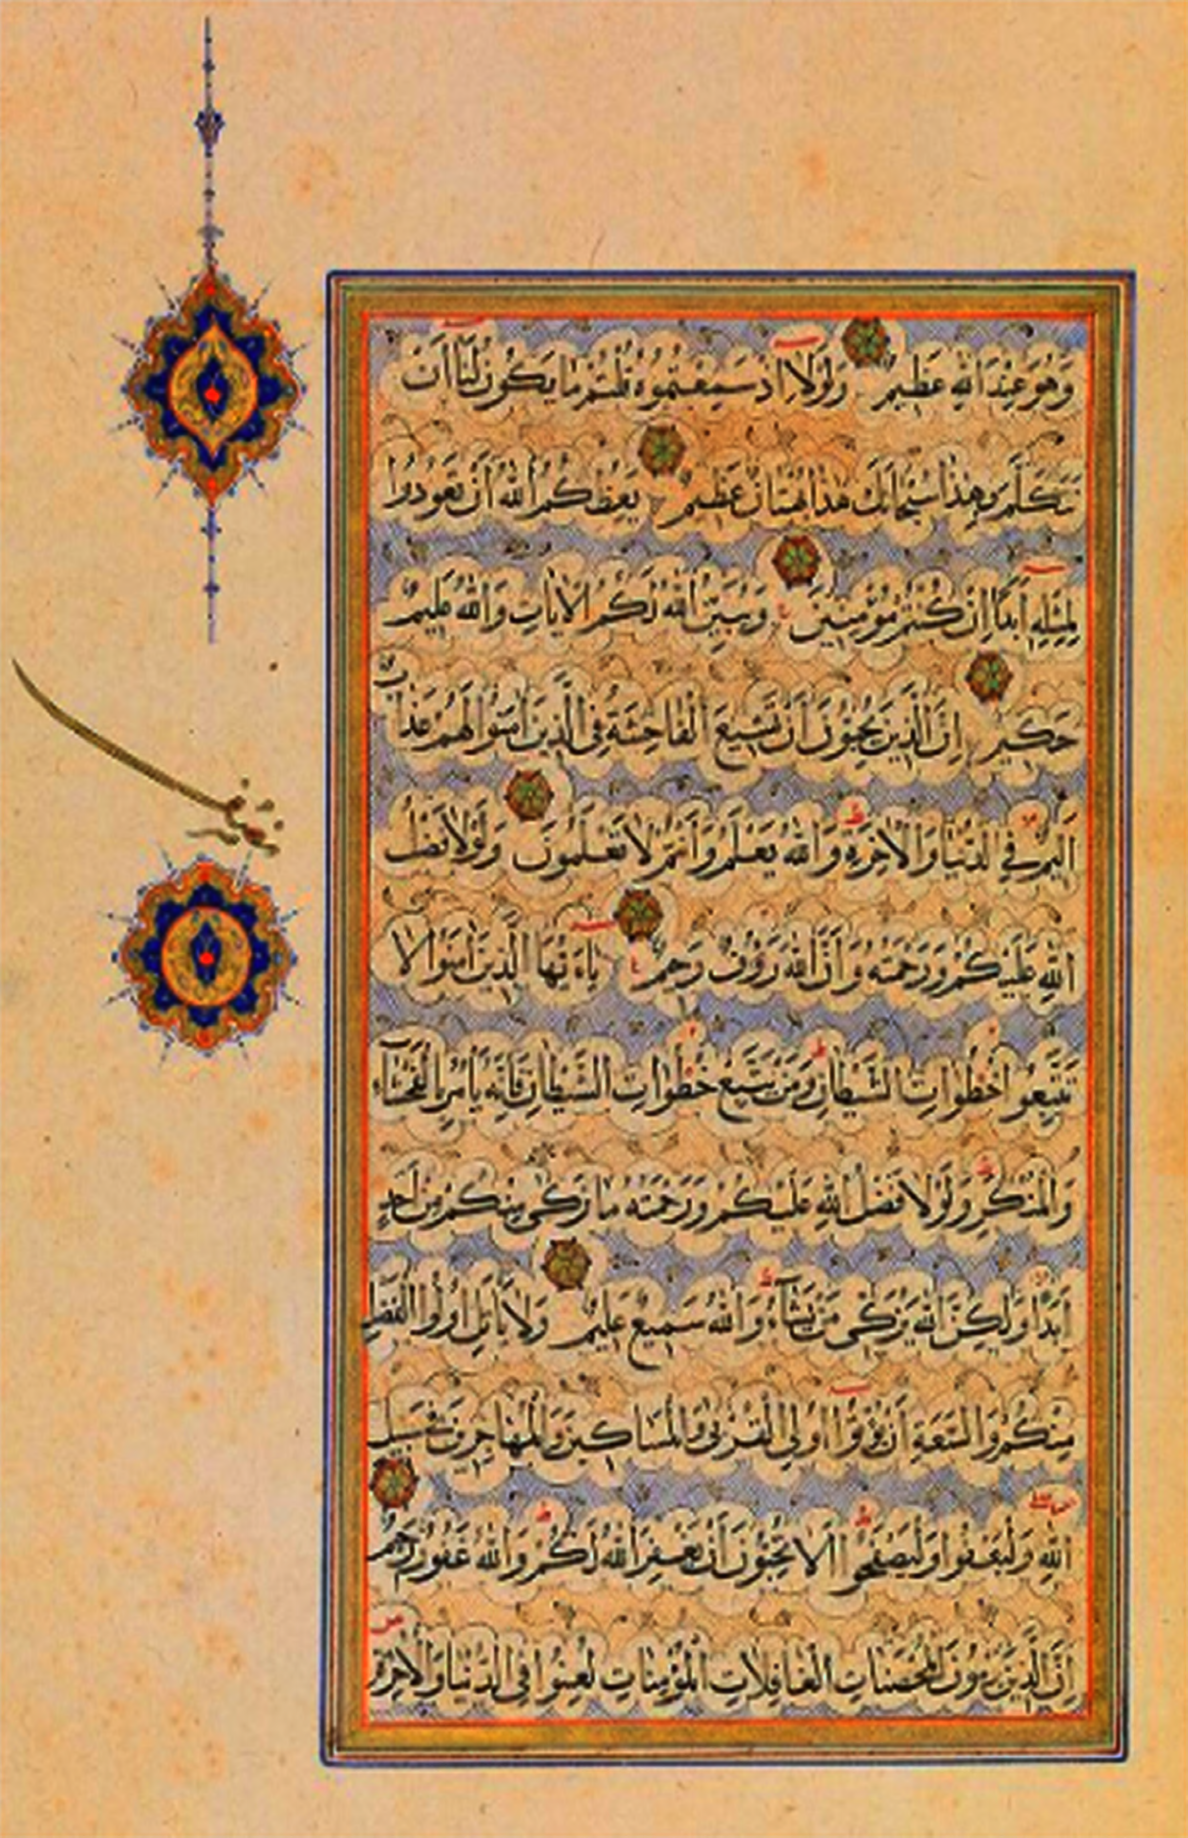 وَهُوَ عِنْدَ اللهِ عَظِيمٌ وَلَوْلَا اِذْ سَمِعْتُمُوهُ قُلْتُمْ مَا يَكُونُ لَنَا اَنْ
نَتَكَلَّمَ بِهٰذَا سُبْحَانَكَ هٰذَا بُهْتَانٌ عَظِيمٌ يَعِظُكُمُ اللهُ اَنْ تَعُودُوا
لِمِثْلِهِ اَبَدًا اِنْ كُنْتُمْ مُؤْمِنِينَ وَيُبَيِّنُ اللهُ لَكُمُ الْاٰيَاتِ وَاللهُ عَلِيمٌ
حَكِيمٌ اِنَّ الَّذِينَ يُحِبُّونَ اَنْ تَشِيعَ الْفَاحِشَةُ فِي الَّذِينَ اٰمَنُوا لَهُمْ عَذَابٌ
اَلِيمٌ فِي الدُّنْيَا وَالْاٰخِرَةِ وَاللهُ يَعْلَمُ وَاَنْتُمْ لَا تَعْلَمُونَ وَلَوْلَا فَضْلُ
اللهِ عَلَيْكُمْ وَرَحْمَتُهُ وَاَنَّ اللهَ رَؤُوفٌ رَحِيمٌ يَاءَيُّهَا الَّذِينَ اٰمَنُوا لَا
تَتَّبِعُوا خُطُوَاتِ الشَّيْطَانِ وَمَنْ يَتَّبِعْ خُطُوَاتِ الشَّيْطَانِ فَاِنَّهُ يَأْمُرُ بِالْفَحْشَاءِ
وَالْمُنْكَرِ وَلَوْلَا فَضْلُ اللهِ عَلَيْكُمْ وَرَحْمَتُهُ مَا زَكٰى مِنْكُمْ مِنْ اَحَدٍ
اَبَدًا وَلٰكِنَّ اللهَ يُزَكِّي مَنْ يَشَاءُ وَاللهُ سَمِيعٌ عَلِيمٌ وَلَا يَأْتَلِ اُولُوا الْفَضْلِ
مِنْكُمْ وَالسَّعَةِ اَنْ يُؤْتُوا اُولِي الْقُرْبٰى وَالْمَسَاكِينَ وَالْمُهَاجِرِينَ فِي سَبِيلِ
اللهِ وَلْيَعْفُوا وَلْيَصْفَحُوا اَلَا تُحِبُّونَ اَنْ يَغْفِرَ اللهُ لَكُمْ وَاللهُ غَفُورٌ رَحِيمٌ
اِنَّ الَّذِينَ يَرْمُونَ الْمُحْصَنَاتِ الْغَافِلَاتِ الْمُؤْمِنَاتِ لُعِنُوا فِي الدُّنْيَا وَالْاٰخِرَةِ